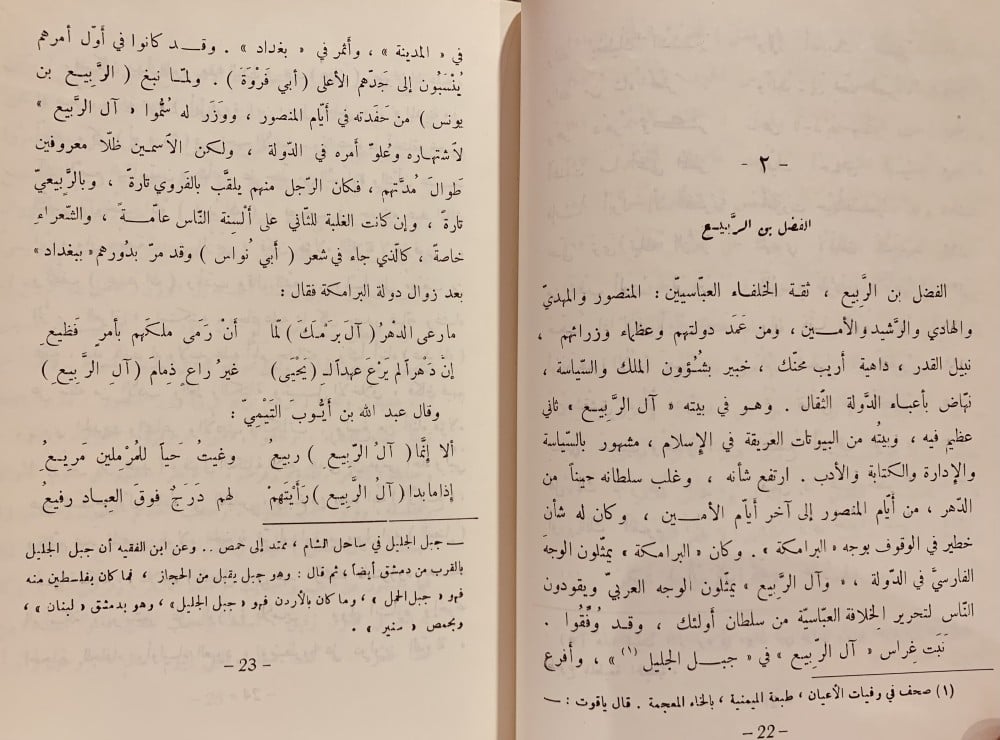 - ٢ -
الفضل بن الرَّبيع
الفضل بن الرَّبيع ، ثقة الخلفاء العبّاسييّن : المنصور والمهديّ
والهادي والرَّشيد والأمــين ، ومن عَمَد دولتهم وعظماء وزرائهم ،
نبيل القدر ، داهية أريب محنّك ، خبير بشُؤُون الملك والسّياسة ،
نهّاض بأعباء الدَّولة الثّقال . وهـو في بيته « آل الرَّبيع » ثاني
عظيم فيه ، وبيتُه من البيوتات العريقة في الإسلام ، مشهور بالسّياسة
والإدارة والكتابة والأدب . ارتفع شأنه ، وغلب سلطانه حيناً من
الدّهر ، من أيّام المنصور إلى آخر أيّام الأمــين ، وكان له شأن
خطير في الوقوف بوجه « البرامكة » . وكان « البرامكة » يمثّلون الوجهَ
الفارسيَّ في الدّولة ، « وآل الرَّبيع » يمثّلون الوجه العربيّ ويقودون
النّاس لتحرير الخِلافة العبّاسيّة من سلطان أولئك ، وقــد وُفِّقُوا .
نَبَت غِراس « آل الرَّبيع » في « جبــل الجليل (١) » ، وأفرع
(١) صحف في وفيات الأعيان ، طبعة الميمنية ، بالخاء المعجمة . قال ياقوت : ــ
- 22 -
في « المدينة » ، وأثمر في « بغداد » . وقــد كانوا في أوّل أمرهم
يُنْسَبُون إلى جَدّهم الأعلى ( أبي فَرْوَةَ ) . ولمّـا نبغ ( الرَّبيـع بن
يونس ) من حَفَدته في أيّام المنصور ، ووَزَر له سُمُّوا « آل الرَّبيع »
لاشتهـاره وعُلوّ أمره في الدّولة ، ولكن الاسمــين ظلّا معروفين
طَوالَ مُدَّتهم ، فكان الرّجل منهم يلقَّب بالفَروي تارةً ، وبالرَّبيعيّ
تارةً ، وإن كانت الغلبة للثّاني على ألْسِنة النّاس عامّـةً ، والشّعراءِ
خاصّةً ، كالّذي جاء في شعر ( أبي نُواس ) وقد مرّ بدُورهم « ببغداد »
بعد زوال دولة البرامكة فقال :
مارعى الدّهرُ ( آلَ بَرْمَـكَ ) لمّا أنْ رَمَى ملكَهم بأمرٍ فَظيعِ
إنَّ دَهْراً لم يَرْعَ عهداً لـِ ( يَحْيَى ) غيرُ راعٍ ذِمامَ ( آلِ الرَّبيعِ )
وقال عبد الله بن أيُّوبَ التَّيْمِيّ :
ألا إنَّمـا ( آلُ الرَّبيعِ ) ربيعُ وغيثُ حياً للمُرْمِلين مَريـعُ
إذا ما بدا ( آلُ الرَّبيع ) رَأَيتَهمْ لهم دَرَجٌ فوقَ العبـاد رفيعُ
ــ جبل الجليل في ساحل الشام ، ممتد إلى حمص .. وعن ابن الفقيه أن جبل الجليل
بالقرب من دمشق أيضاً ، ثم قال : وهو جبل يقبل من الحجاز ، فما كان بفلسطين منه
فهو « جبل الحمل » ، وما كان بالأردن فهو « جبل الجليل » ، وهو بدمشق « لبنان » ،
وبحمص « سنير » .
- 23 -